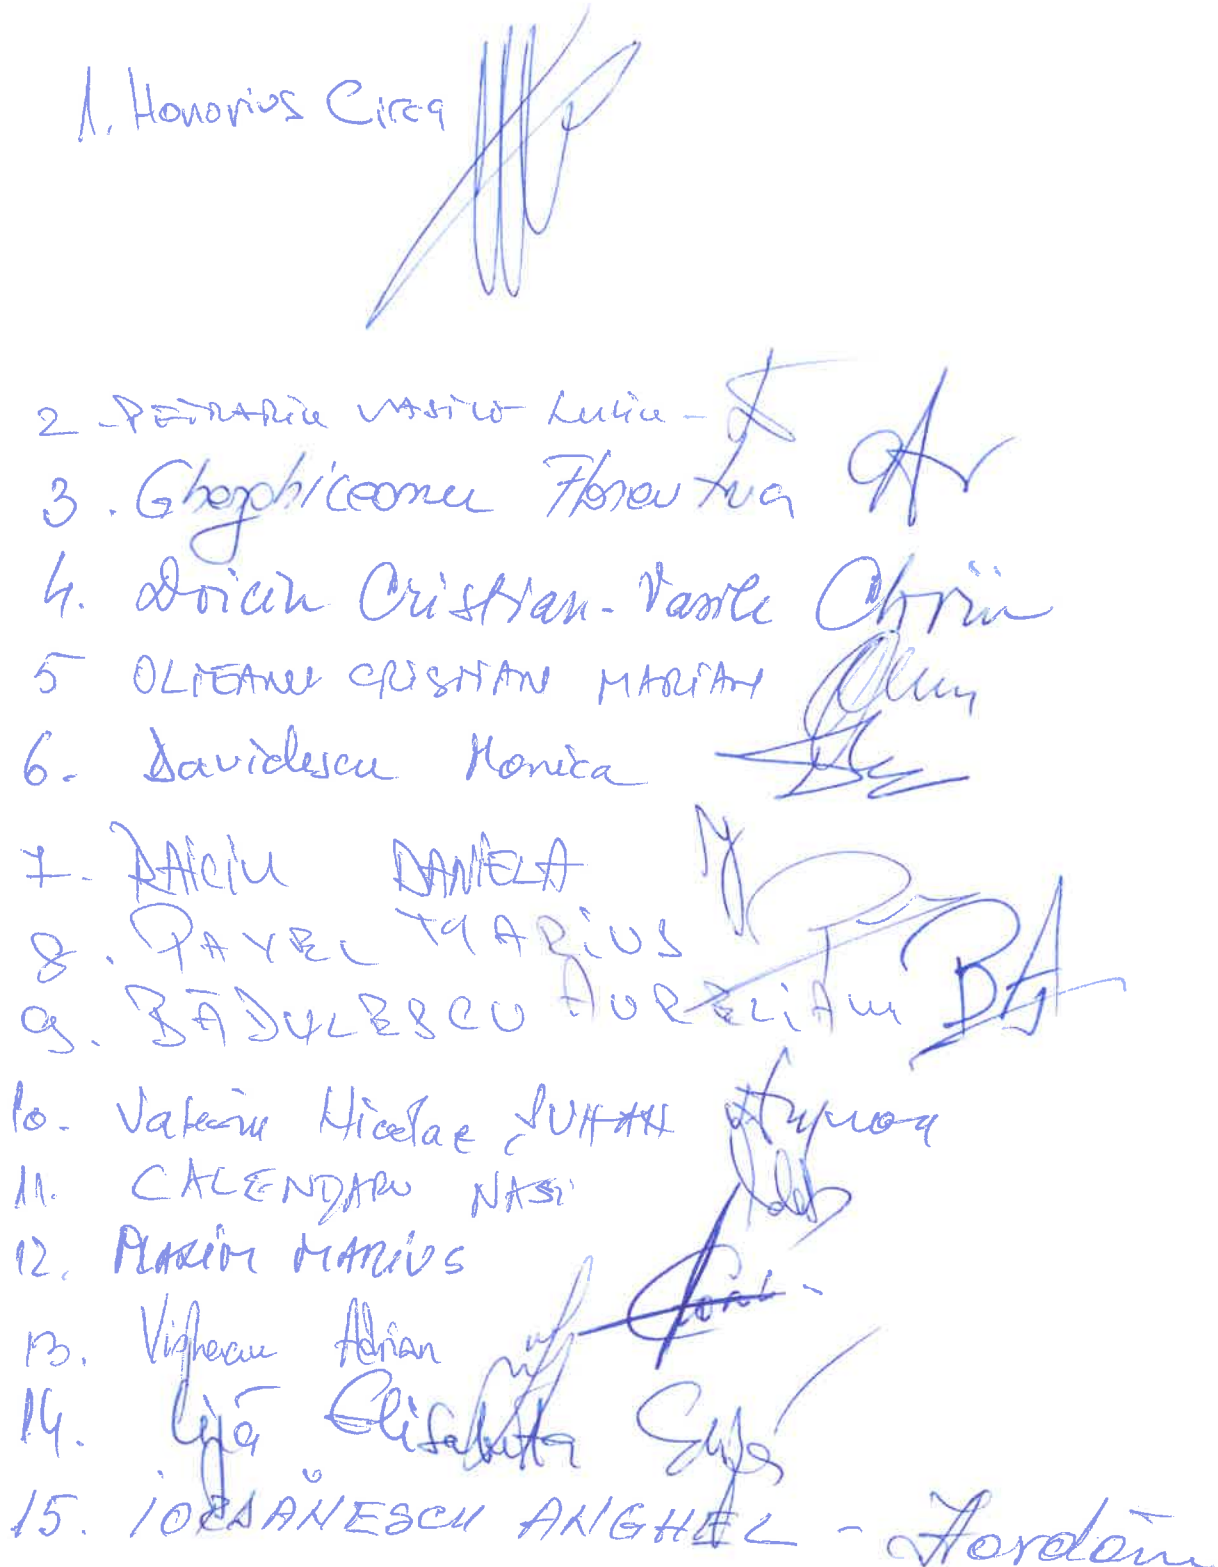 1. Honorius Circa
2 - PETRARIU VASILE Liviu -
3. Gherghiceanu Florentina
4. Doicin Cristian-Vasile
5 OLTEANU CRISTIAN MARIAN
6. Davidescu Monica
7. RAICIU DANIELA
8. PAVEL MARIUS
9. BĂDULESCU AURELIAN
10. Nicolae
11. CALENDARU NASI
12. MAXIM MARIUS
13. Adrian
14. Elisabeta
15. IORDĂNESCU ANGHEL -